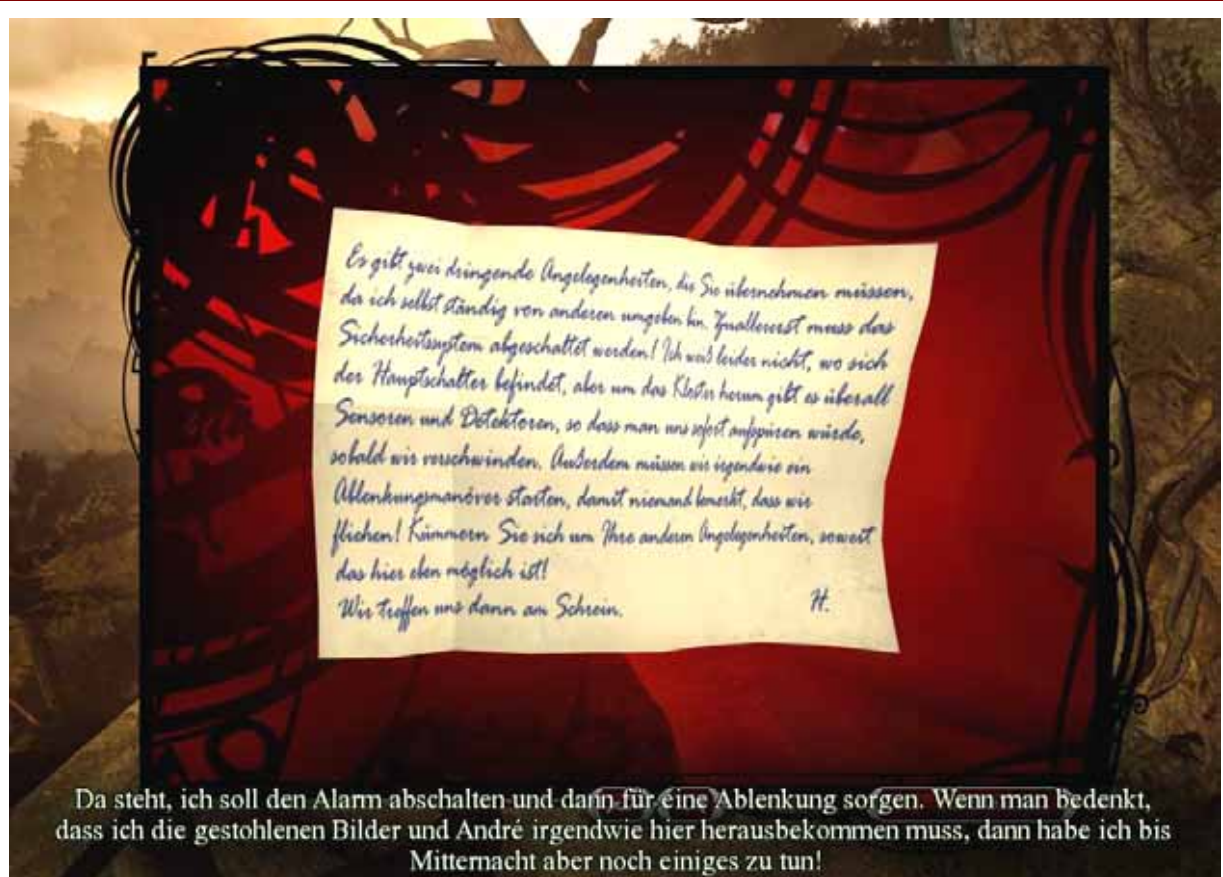 Es gibt zwei dringende Angelegenheiten, die Sie übernehmen müssen,
da ich selbst ständig von anderen umgeben bin. Zuallererst muss das
Sicherheitssystem abgeschaltet werden! Ich weiß leider nicht, wo sich
der Hauptschalter befindet, aber um das Kloster herum gibt es überall
Sensoren und Detektoren, so dass man uns sofort aufspüren würde,
sobald wir verschwinden. Außerdem müssen wir irgendwie ein
Ablenkungsmanöver starten, damit niemand bemerkt, dass wir
fliehen! Kümmern Sie sich um Ihre anderen Angelegenheiten, soweit
das hier eben möglich ist!
Wir treffen uns dann am Schrein. H.
Da steht, ich soll den Alarm abschalten und dann für eine Ablenkung sorgen. Wenn man bedenkt,
dass ich die gestohlenen Bilder und André irgendwie hier herausbekommen muss, dann habe ich bis
Mitternacht aber noch einiges zu tun!